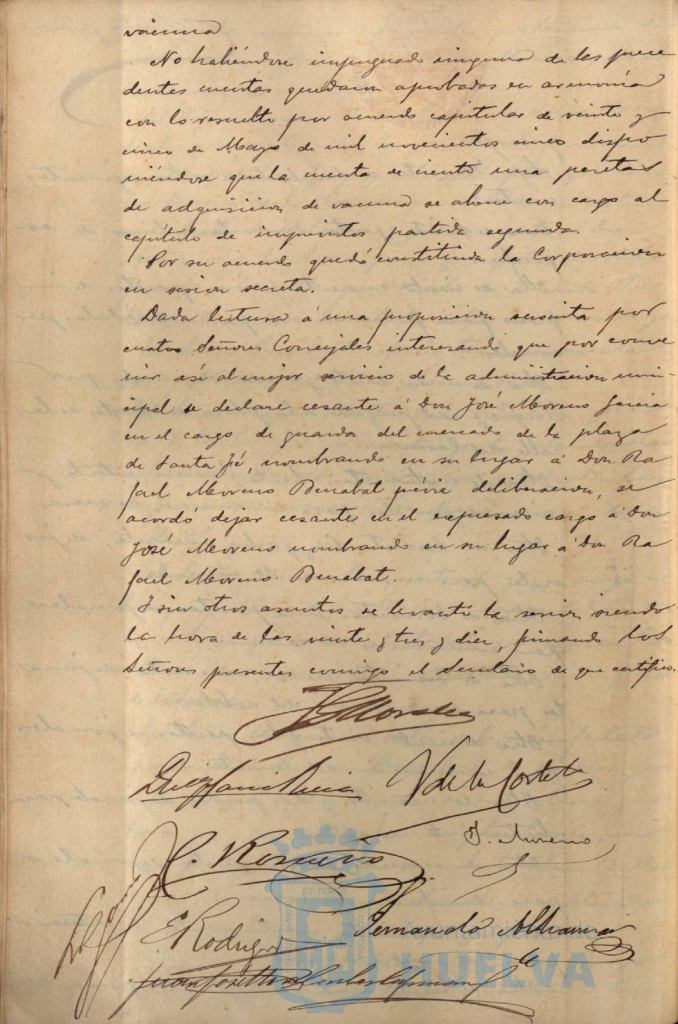 vacuna
No habiéndose impugnado ninguna de las prece
dentes cuentas quedaron aprobadas en armonía
con lo resuelto por acuerdo capitular de veinte y
cinco de Mayo de mil novecientos cinco dispo
niéndose que la cuenta de ciento una pesetas
de adquisicion de vacuna se abone con cargo al
capítulo de imprevistos partida segunda.
Por su acuerdo quedó constituida la Corporacion
en sesion secreta.
Dada lectura á una proposicion suscrita por
cuatro Señores Concejales interesando que por conve
nir así al mejor servicio de la administracion muni
cipal se declare cesante á Don José Moreno Garcia
en el cargo de guarda del mercado de la plaza
de Santa Fé, nombrando en su lugar á Don Ra
fael Moreno Benabat prévia deliberacion, se
acordó dejar cesante en el expresado cargo á Don
José Moreno nombrando en su lugar á Don Ra
fael Moreno Benabat.
Y sin otros asuntos se levantó la sesion siendo
la hora de las veinte y tres y diez, firmando los
Señores presentes conmigo el Secretario de que certifico.
Morales
V de la Corte
J. Moreno
C. Romero
E. Rodrig
Fernando
HUELVA